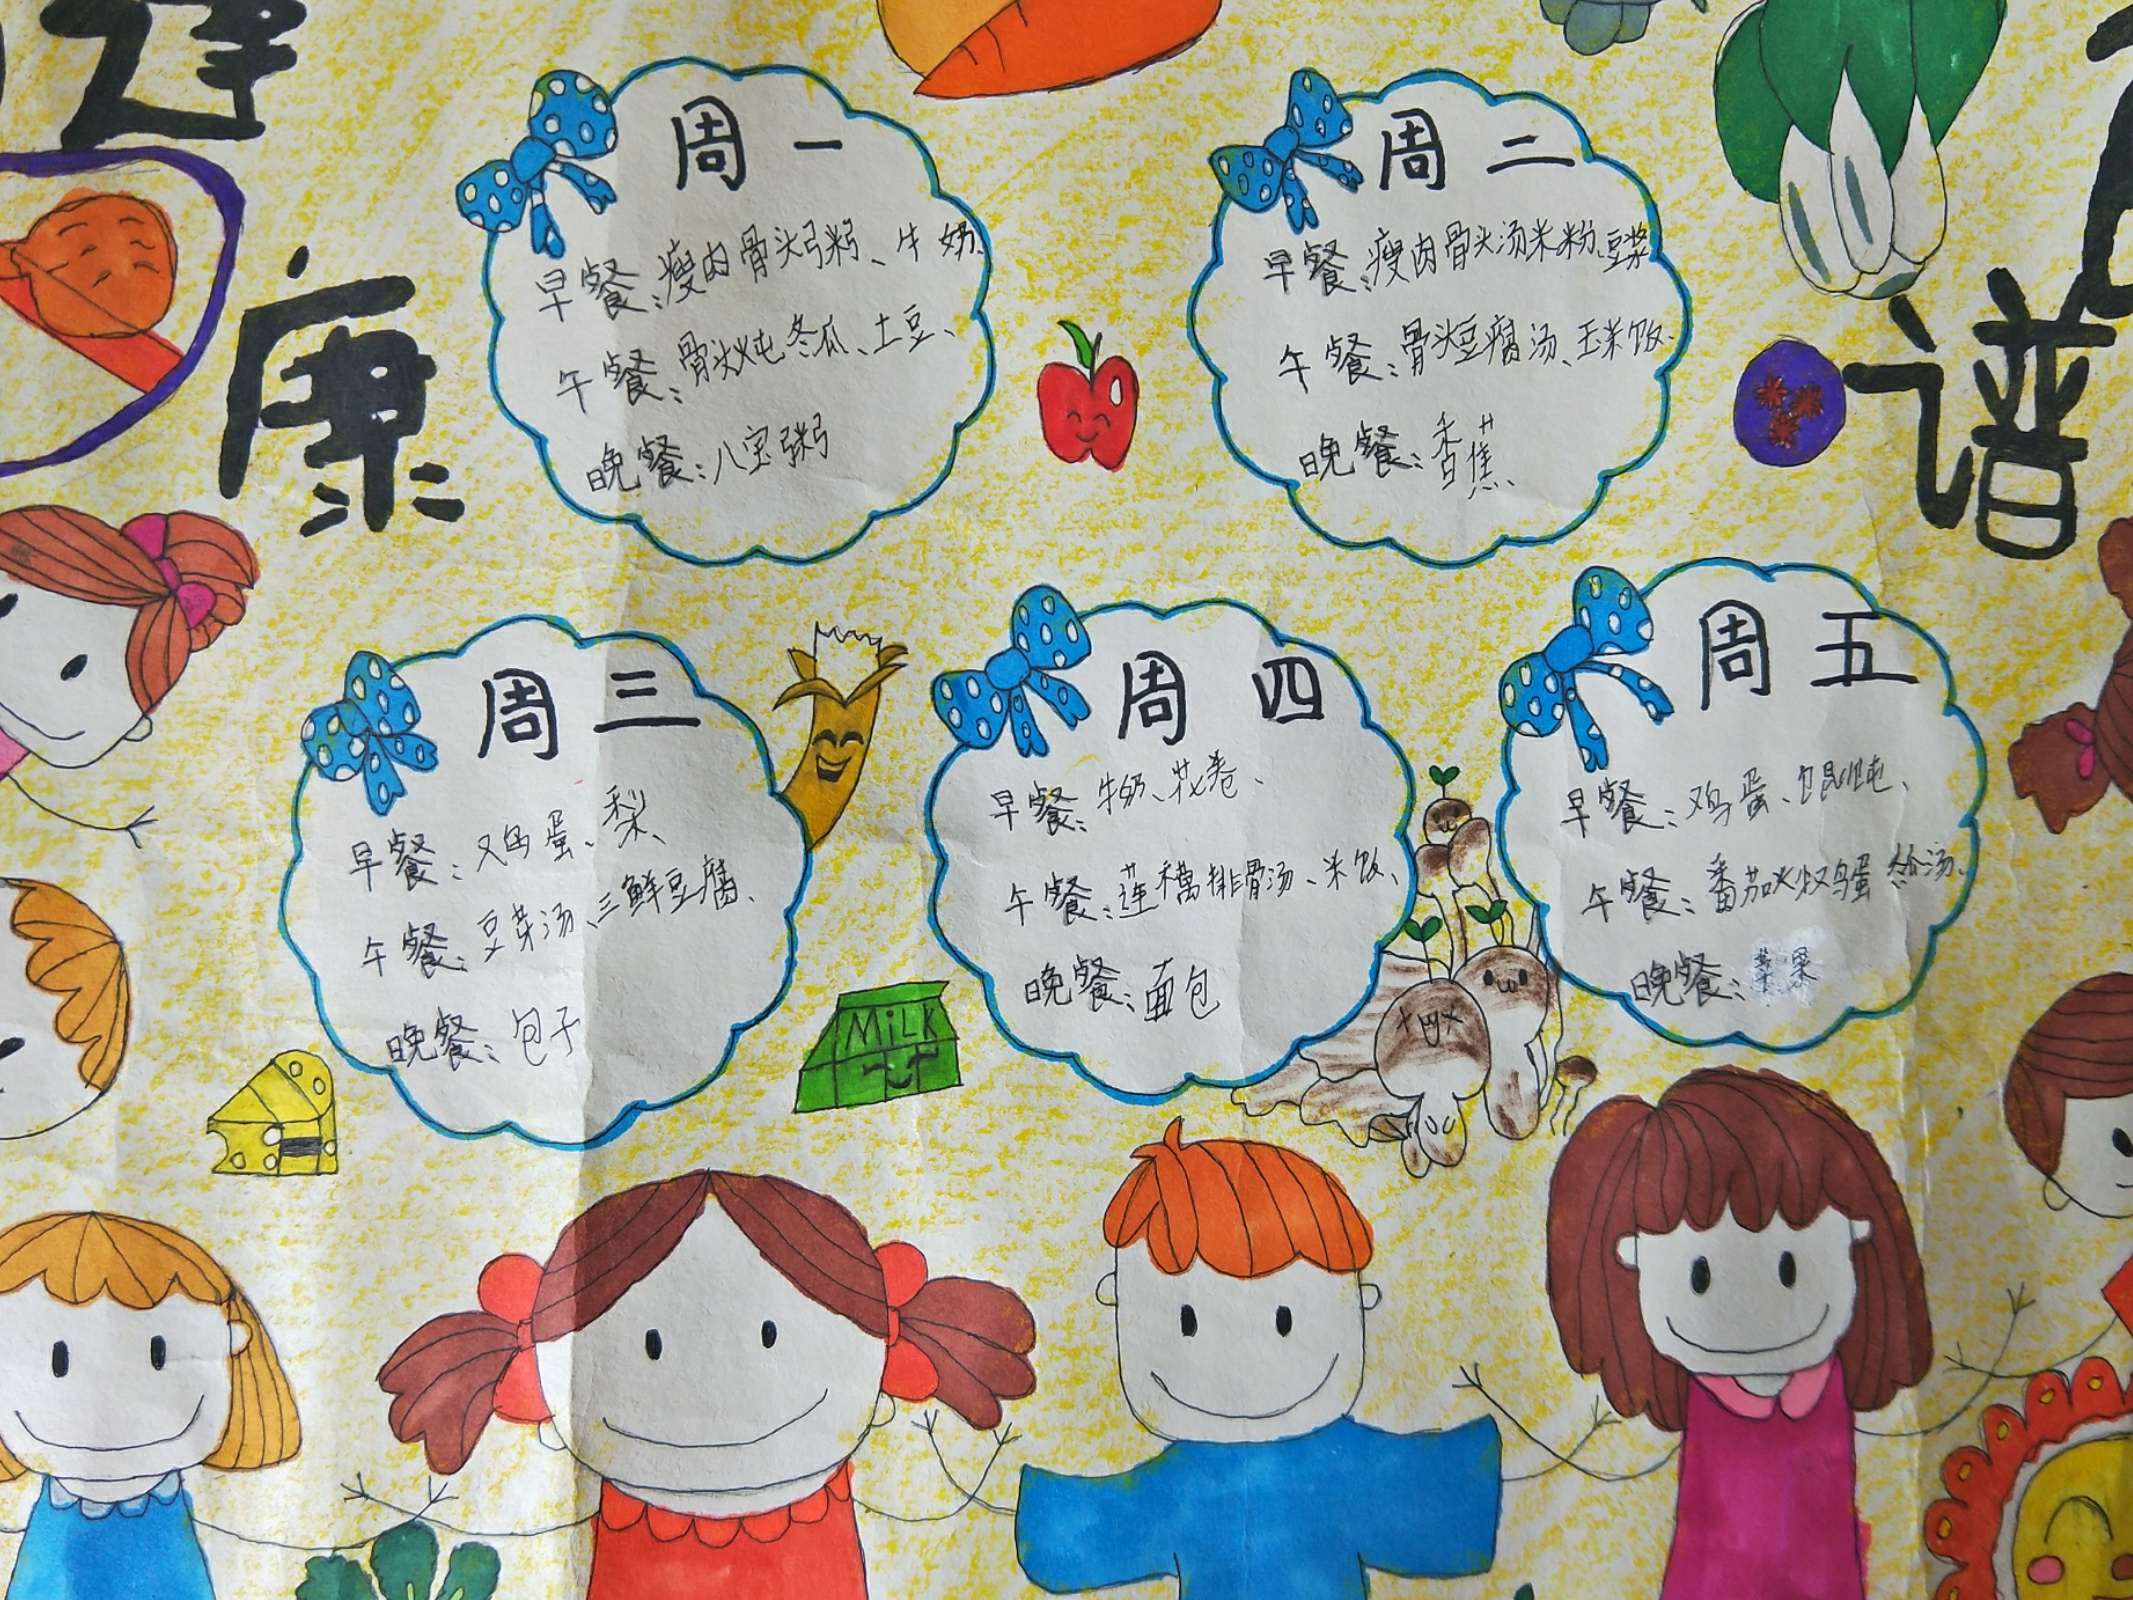 健
康
谱
周一
早餐：瘦肉骨头粥、牛奶、
午餐：骨头炖冬瓜、土豆、
晚餐：八宝粥
周二
早餐：瘦肉骨头汤米粉、豆浆
午餐：骨头豆腐汤、玉米饭、
晚餐：香蕉
周三
早餐：鸡蛋、梨、
午餐：豆芽汤、三鲜豆腐、
晚餐：包子
周四
早餐：牛奶、花卷、
午餐：莲藕排骨汤、米饭、
晚餐：面包
周五
早餐：鸡蛋、馄饨、
午餐：番茄炒鸡蛋 汤、
晚餐：
MiLK